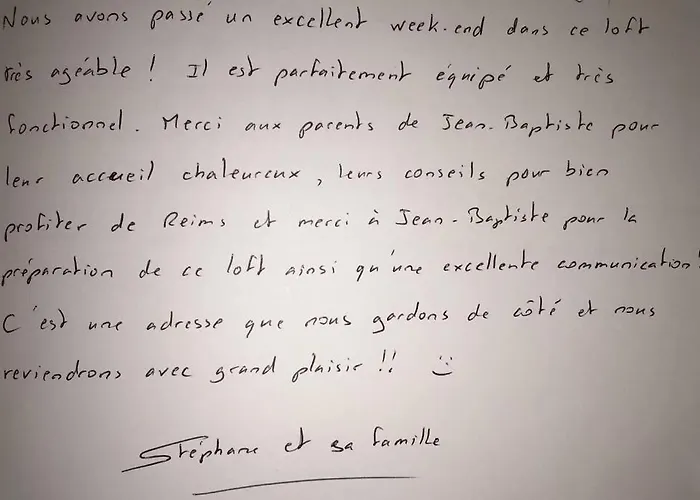 Nous avons passé un excellent week-end dans ce loft
très agéable ! Il est parfaitement équipé et très
fonctionnel. Merci aux parents de Jean-Baptiste pour
leur accueil chaleureux, leurs conseils pour bien
profiter de Reims et merci à Jean-Baptiste pour la
préparation de ce loft ainsi qu'une excellente communication !
C'est une adresse que nous gardons de côté et nous
reviendrons avec grand plaisir !! :)
Stéphane et sa famille